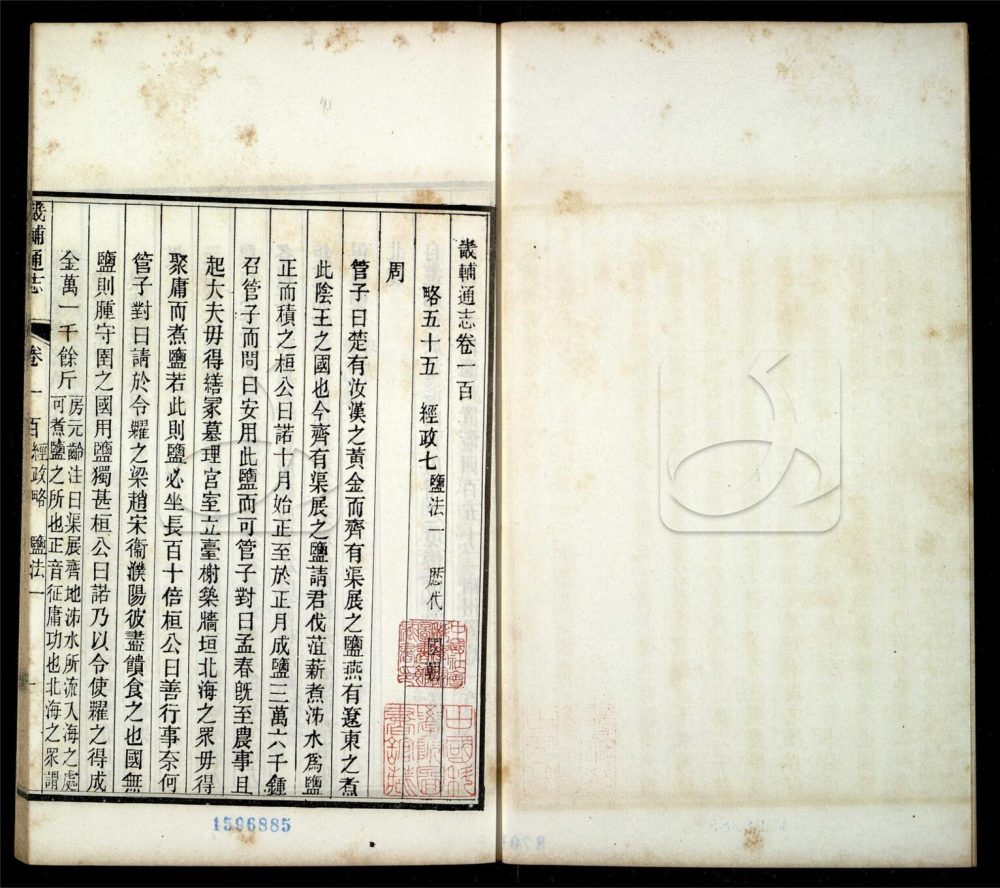 畿輔通志卷一百
略五十五　經政七　鹽法一　歷代　國朝
周
管子曰楚有汝漢之黃金而齊有渠展之鹽燕有遼東之煮
此陰王之國也今齊有渠展之鹽請君伐菹薪煮沸水爲鹽
正而積之桓公曰諾十月始正至於正月成鹽三萬六千鍾
召管子而問曰安用此鹽而可管子對曰孟春旣至農事且
起大夫毋得繕冢墓理宮室立臺榭築牆垣北海之眾毋得
聚庸而煮鹽若此則鹽必坐長百十倍桓公曰善行事奈何
管子對曰請於令糶之梁趙宋衞濮陽彼盡饋食之也國無
鹽則腫守圉之國用鹽獨甚桓公曰諾乃以令使糶之得成
金萬一千餘斤房元齡注曰渠展齊地沸水所流入海之處
可煮鹽之所也正音征庸功也北海之眾謂
畿輔通志　卷一百　經政略　鹽法一　一
1596885